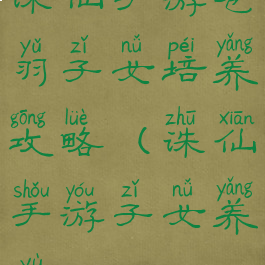 诛仙手游电
yǔ zǐ nǚ péi yǎng
羽子女培养
gōng lüè zhū xiān
攻略(诛仙
shǒu yóu zǐ nǚ yǎng
手游子女养
yù